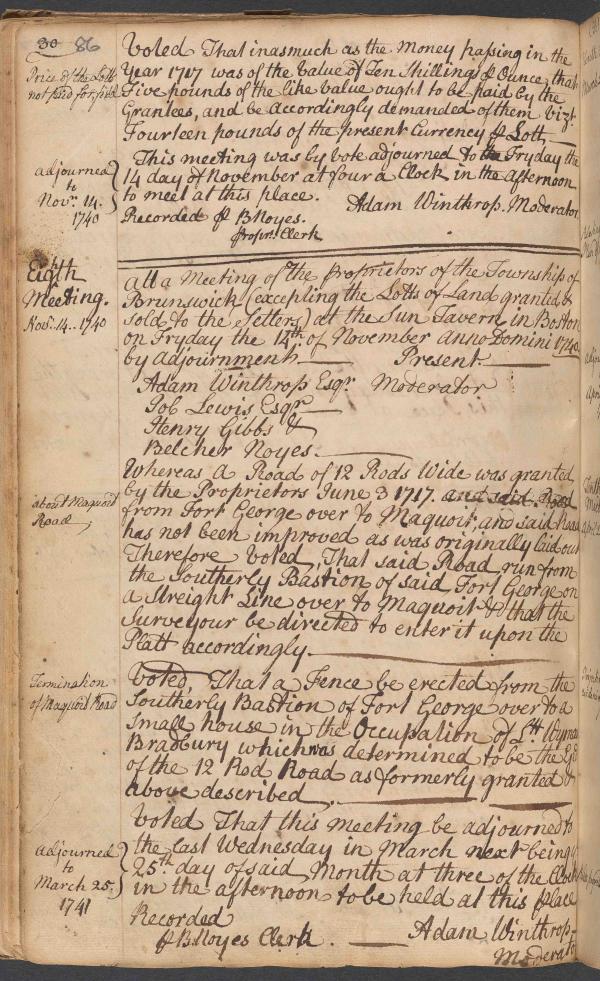 30 86
Price of the Lotts
not paid for fixed
Voted That inasmuch as the Money passing in the
Year 1717 was of the Value of Ten Shillings ⅌ Ounce, that
Five pounds of the like value ought to be paid by the
Grantees, and be accordingly demanded of them vizt.
Fourteen pounds of the present Currency ⅌ Lott,
adjourned
to
Novr. 14.
1740
This meeting was by vote adjourned to the Fryday the
14 day of November at four a Clock in the afternoon
to meet at this place.
Adam Winthrop. Moderator
Recorded ⅌ B Noyes.
Proprs. Clerk
Eigth
Meeting.
Nov. 14. 1740
Att a Meeting of the Proprietors of the Township of
Brunswick (excepting the Lotts of Land granted &
sold to the Setters) at the Sun Tavern in Boston
on Fryday the 14th of November Anno Domini 1740
by adjournment. Present.
Adam Winthrop Esqr Moderator
Job Lewis Esqr
Henry Gibbs &
Belcher Noyes.
about Maquoit
Road,
Whereas a Road of 12 Rods Wide was granted
by the Proprietors June 3 1717. and said Road
from Fort George over to Maquoit, and said Road
has not been improved as was originally laid out
Therefore Voted, That said Road run from
the Southerly Bastion of said Fort George on
a Streight Line over to Maquoit & that the
Surveyour be directed to enter it upon the
Platt accordingly.
Termination
of Maquoit Road
Voted, That a Fence be erected from the
Southerly Bastion of Fort George over to a
small house in the Occupation of Ltt Wyman
Bradbury which was determined to be the
of the 12 Rod Road as formerly granted &
above described.
adjourned
to
March 25.
1741
Voted That this meeting be adjourned to
the last Wednesday in March next being
25th day of said Month at three of the Clock
in the afternoon to be held at this place
Recorded
⅌ B. Noyes Clerk.
Adam Winthrop
Moderator